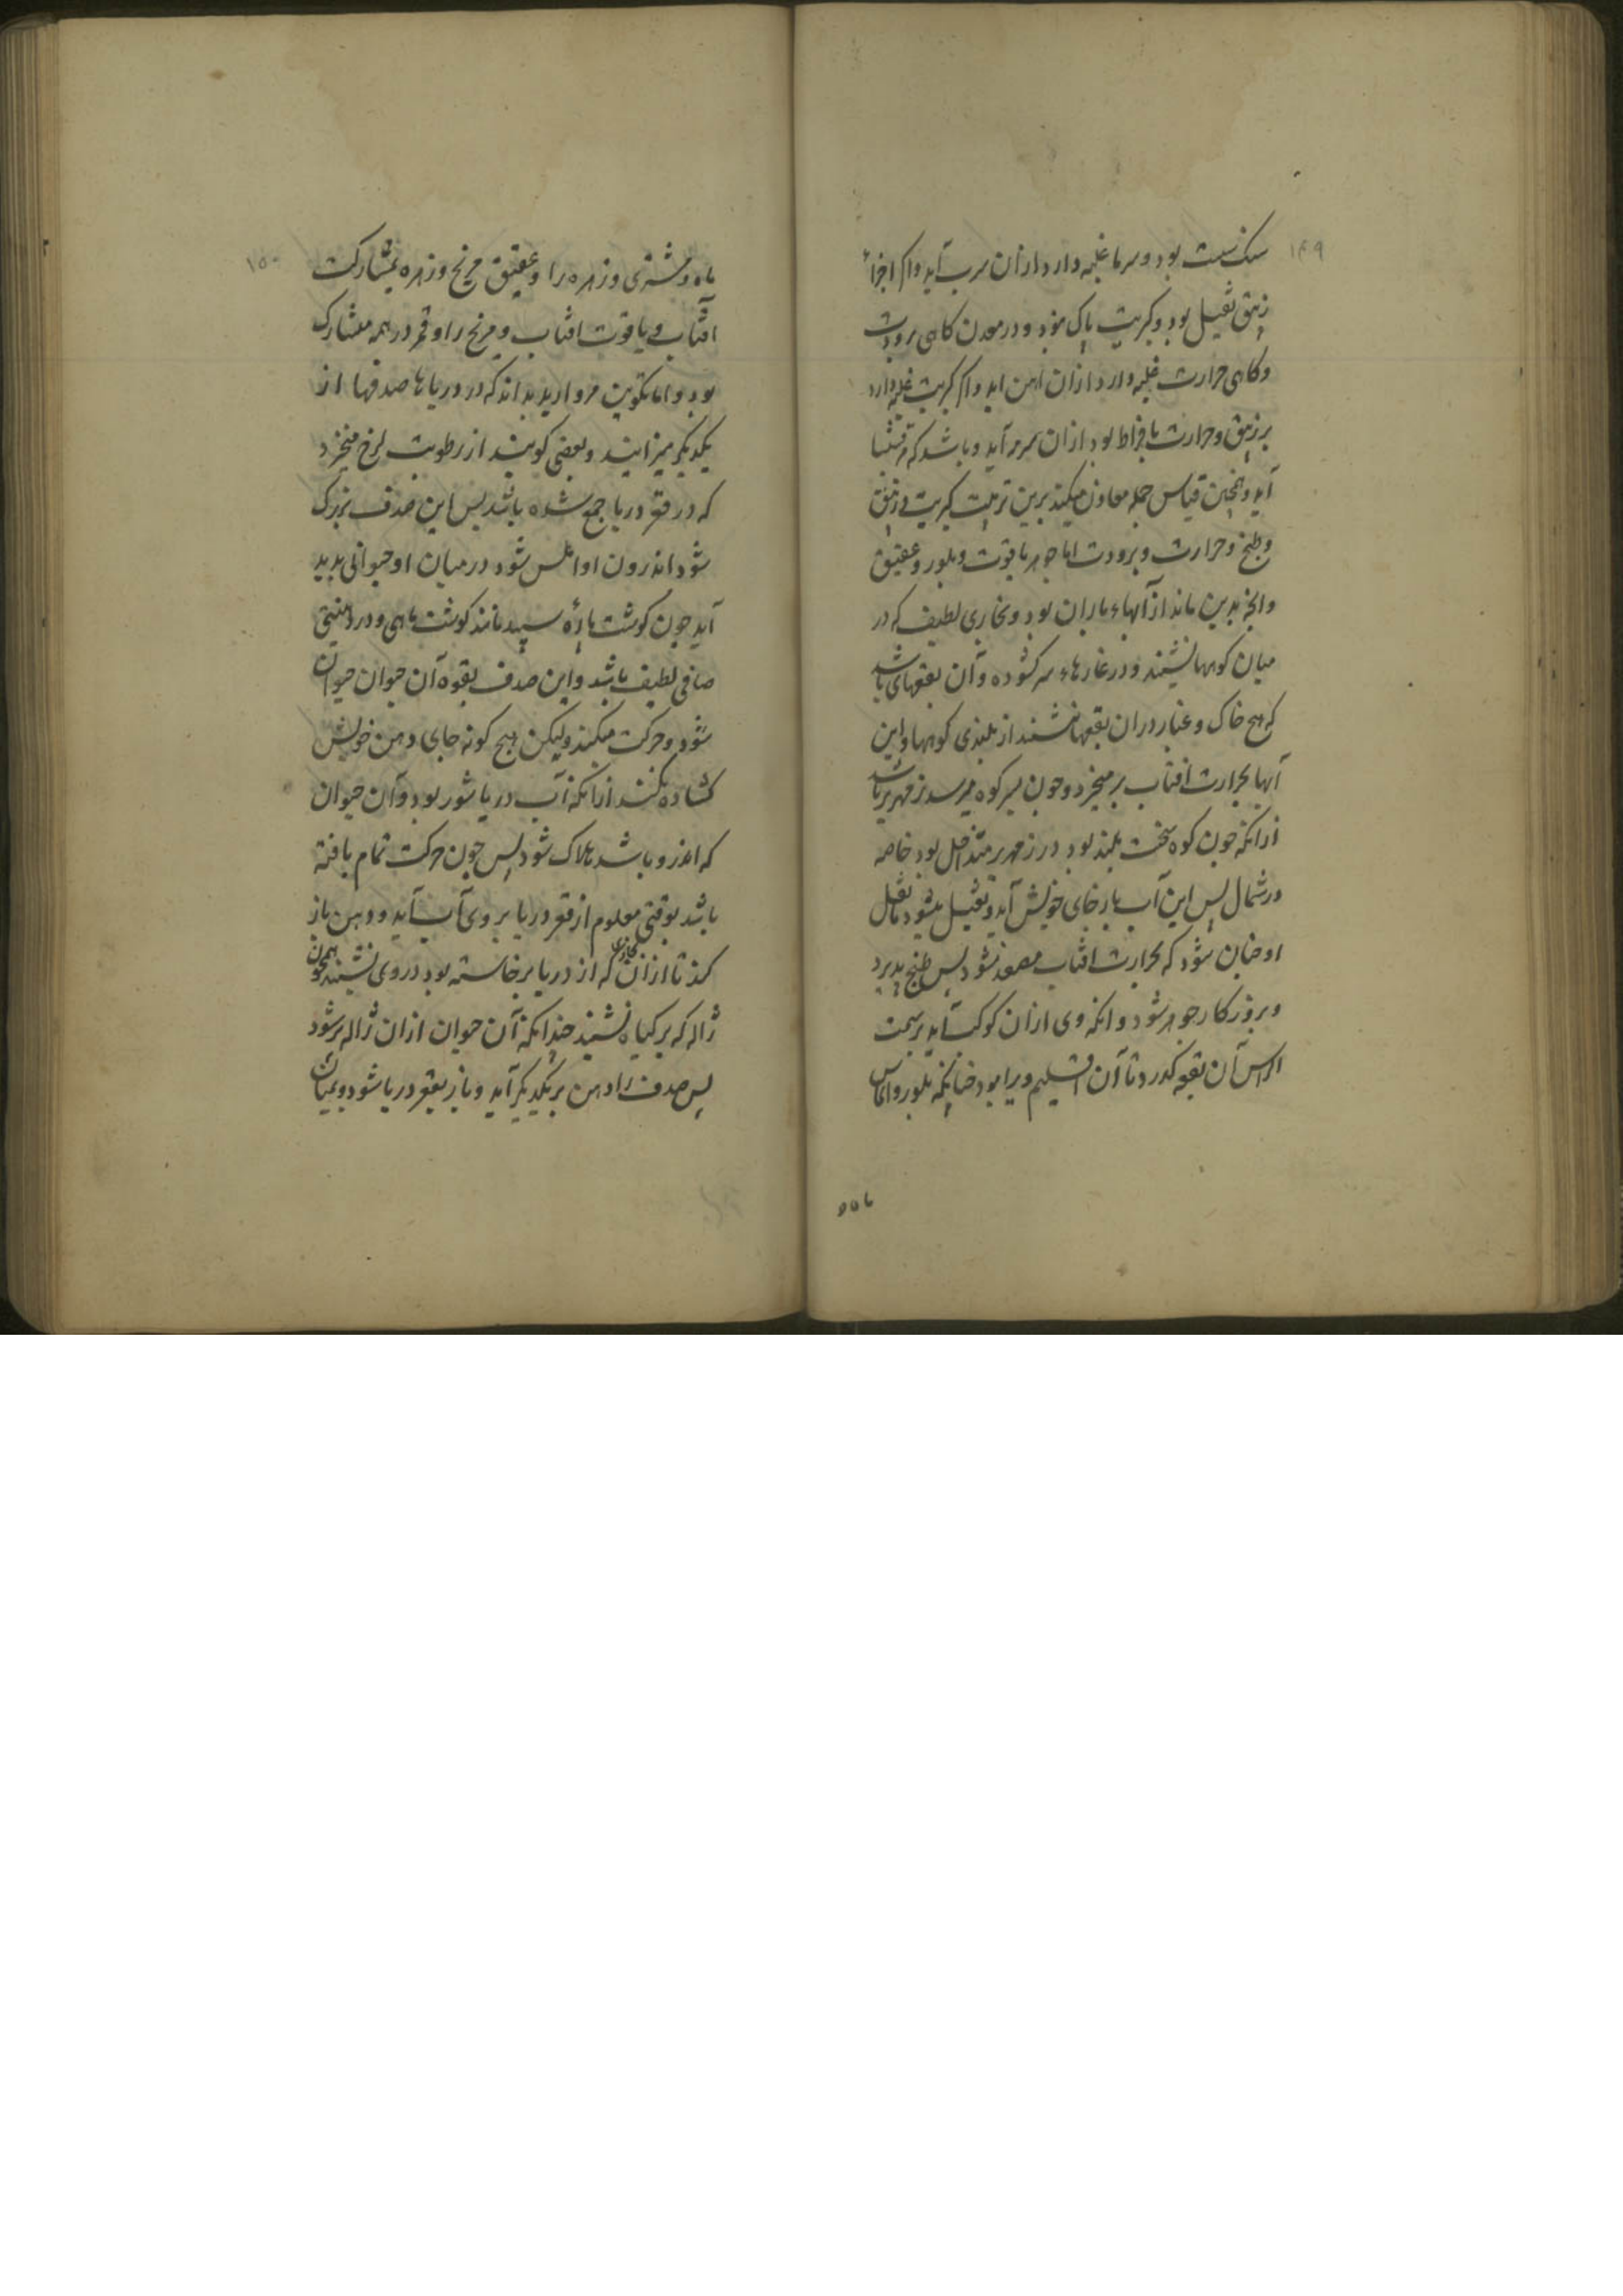 ۱۴۹
سنک سست بود و سرما غلبه دارد ازان سرب آید و اکر اجزاء
زیبق ثقیل بود و کبریت پاک بود و در معدن کاهی برودت
و کاهی حرارت غلبه دارد ازان اهن اید و اکر کبریت غلبه دارد
بر زیبق و حرارت بافراط بود ازان سرمه آید و باشد که مرقشیثا
آید و همچنین قیاس جمله معادن میکند برین ترتیب کبریت و زیبق
و طبخ و حرارت و برودت اما جوهر یاقوت و بلور و عقیق
و انج بدین ماند از آبهاء باران بود و بخاری لطیف که در
میان کوهها نشیند و در غارهاء سر کشوده و آن بقعهای باشد
که هیچ خاک و غبار دران بقعها ننشیند از بلندی کوهها و این
آبها بحرارت افتاب بر میخیزد و جون بسر کوه میرسد زمهریر باشد
ازانکه جون کوه سخت بلند بود در زمهریر متداخل بود خاصه
در شمال پس این آب باز جای خویش آید و ثقیل میشود تا ثقل
او جنان شود که بحرارت افتاب مصعد نشود پس طبخ پذیرد
و بروزکار جوهر شود و انکه وی ازان کوکب آید بر سمت
الراس آن بقعه کذرد تا آن اقلیم ویرا بود جنانکه بلور و الماس
ماه و
۱۵۰
ماه و مشتری و زهره را و عقیق مریخ و زهره بمشارکت
افتاب و یاقوت افتاب و مریخ را و قمر در همه مشارک
بود و اما تکوین مروارید بدانکه در دریاها صدفها از
یکدیکر میزایند و بعضی کویند از رطوبت لزج میخیزد
که در قعر دریا جمع شده باشد پس این صدف بزرک
شود اندرون او املس شود در میان او حیوانی بدید
آید جون کوشت پارهٔ سپید مانند کوشت ماهی و در
صافی لطیف باشد و این صدف بقوه آن حیوان حیوان
شود و حرکت میکند ولیکن هیج کونه جای دهن خویش
کشاده نکند ازانکه آب دریا شور بود و آن حیوان
که اندرو باشد هلاک شود پس جون حرکت تمام یافته
باشد بوقتی معلوم از قعر دریا بر وی آب آید و دهن باز
کند تا ازان بخاری که از دریا برخاسته بود در وی نشیند همجون
ژاله که بر کیاه نشیند جندانکه آن حیوان ازان ژاله پر شود
پس صدف را دهن بر یکدیکر آید و باز بقعر دریا شود و بمیان